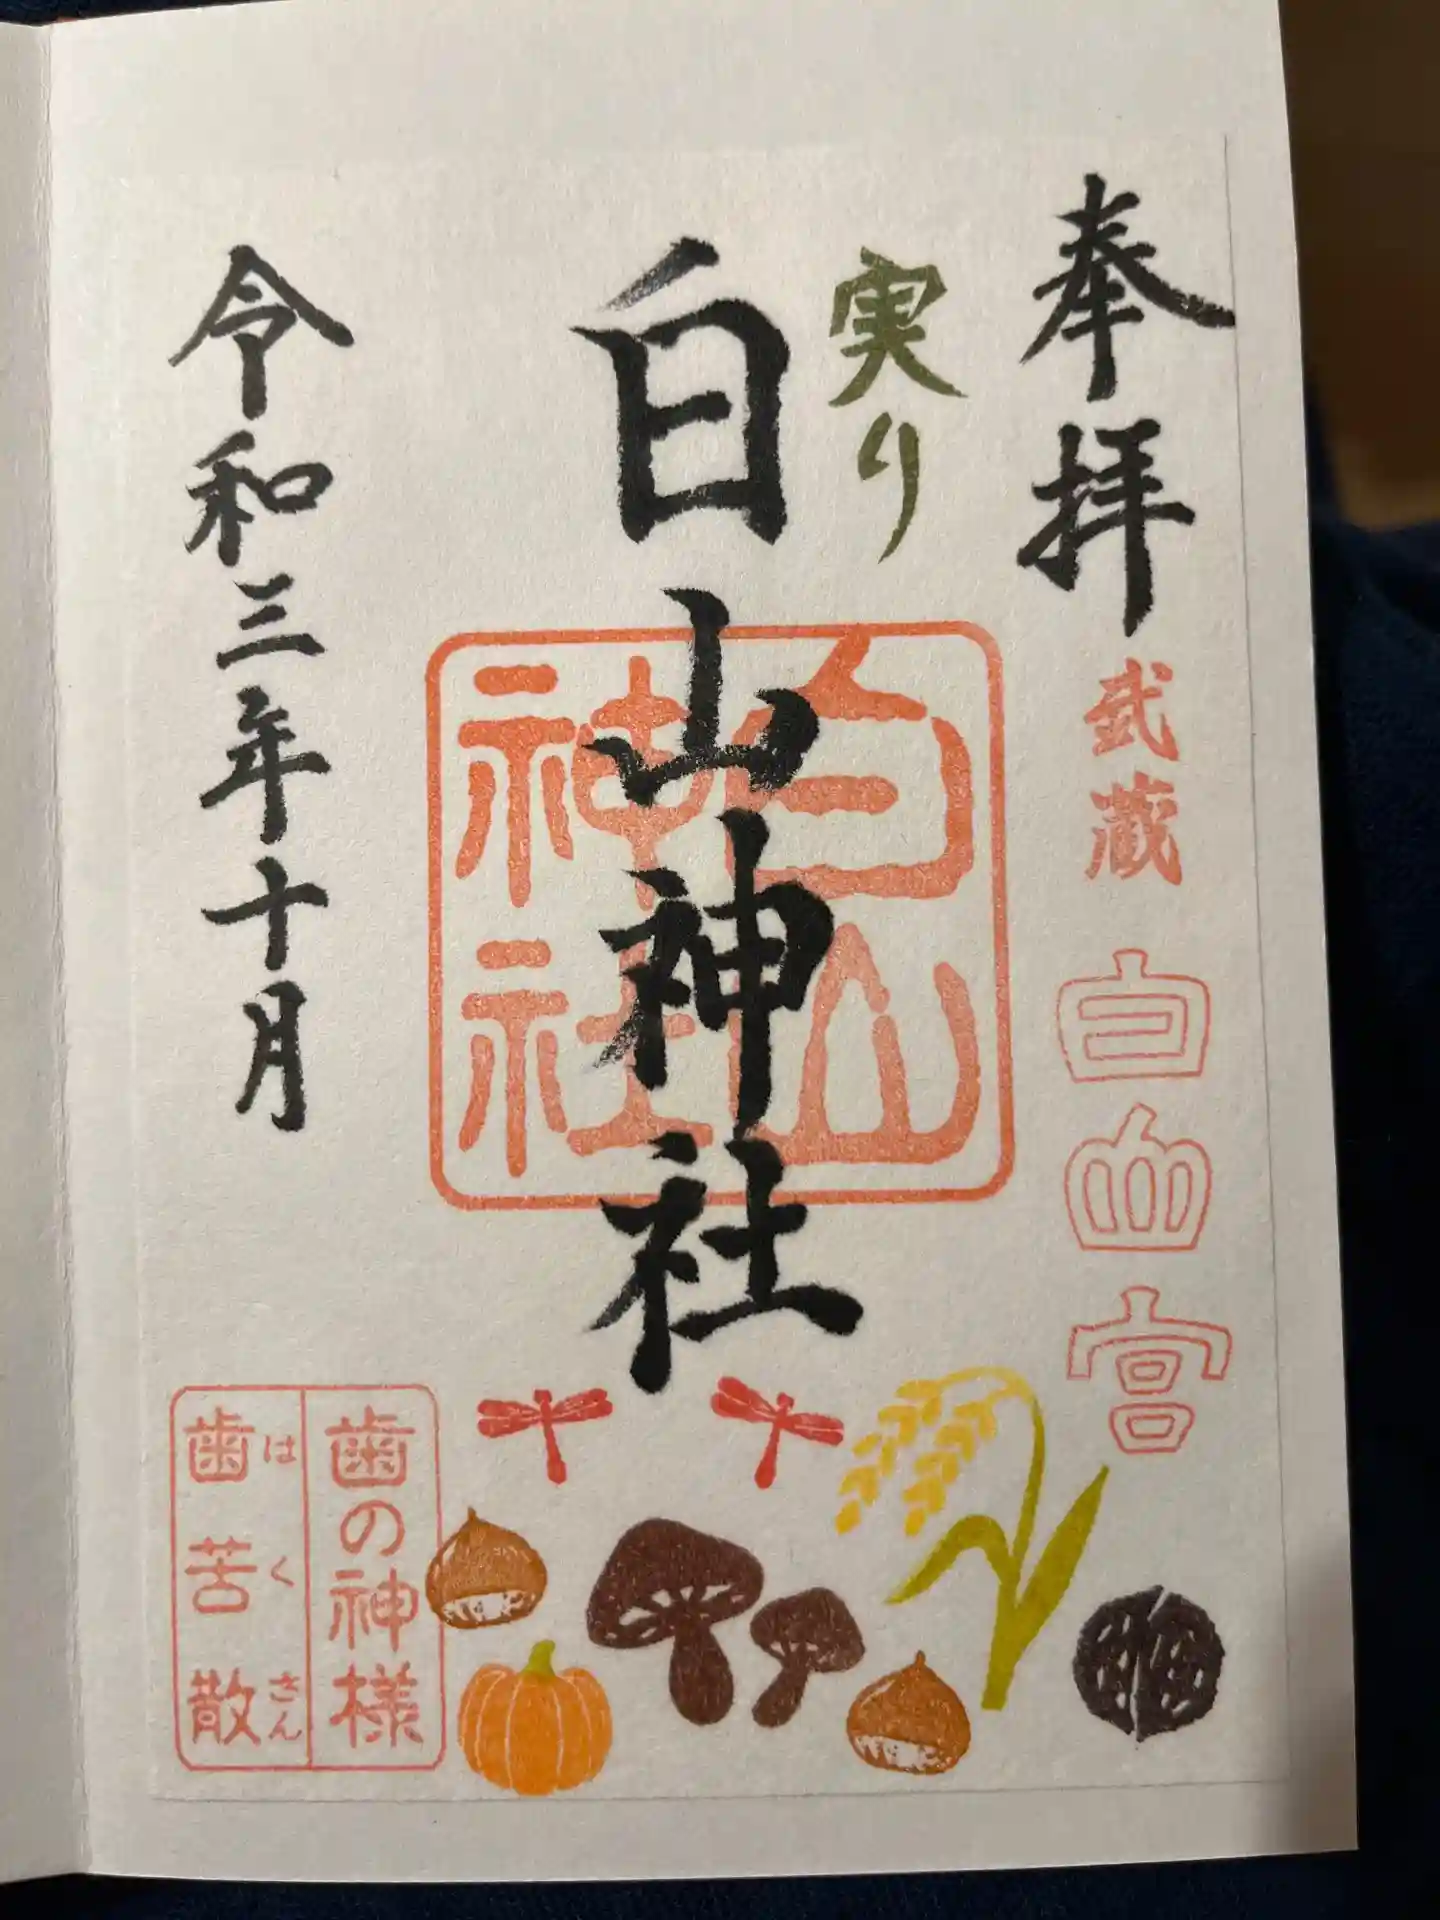 奉拝
武蔵
白山宮
実り
白山神社
白山神社
令和三年十月
歯の神様
歯苦散
はくさん